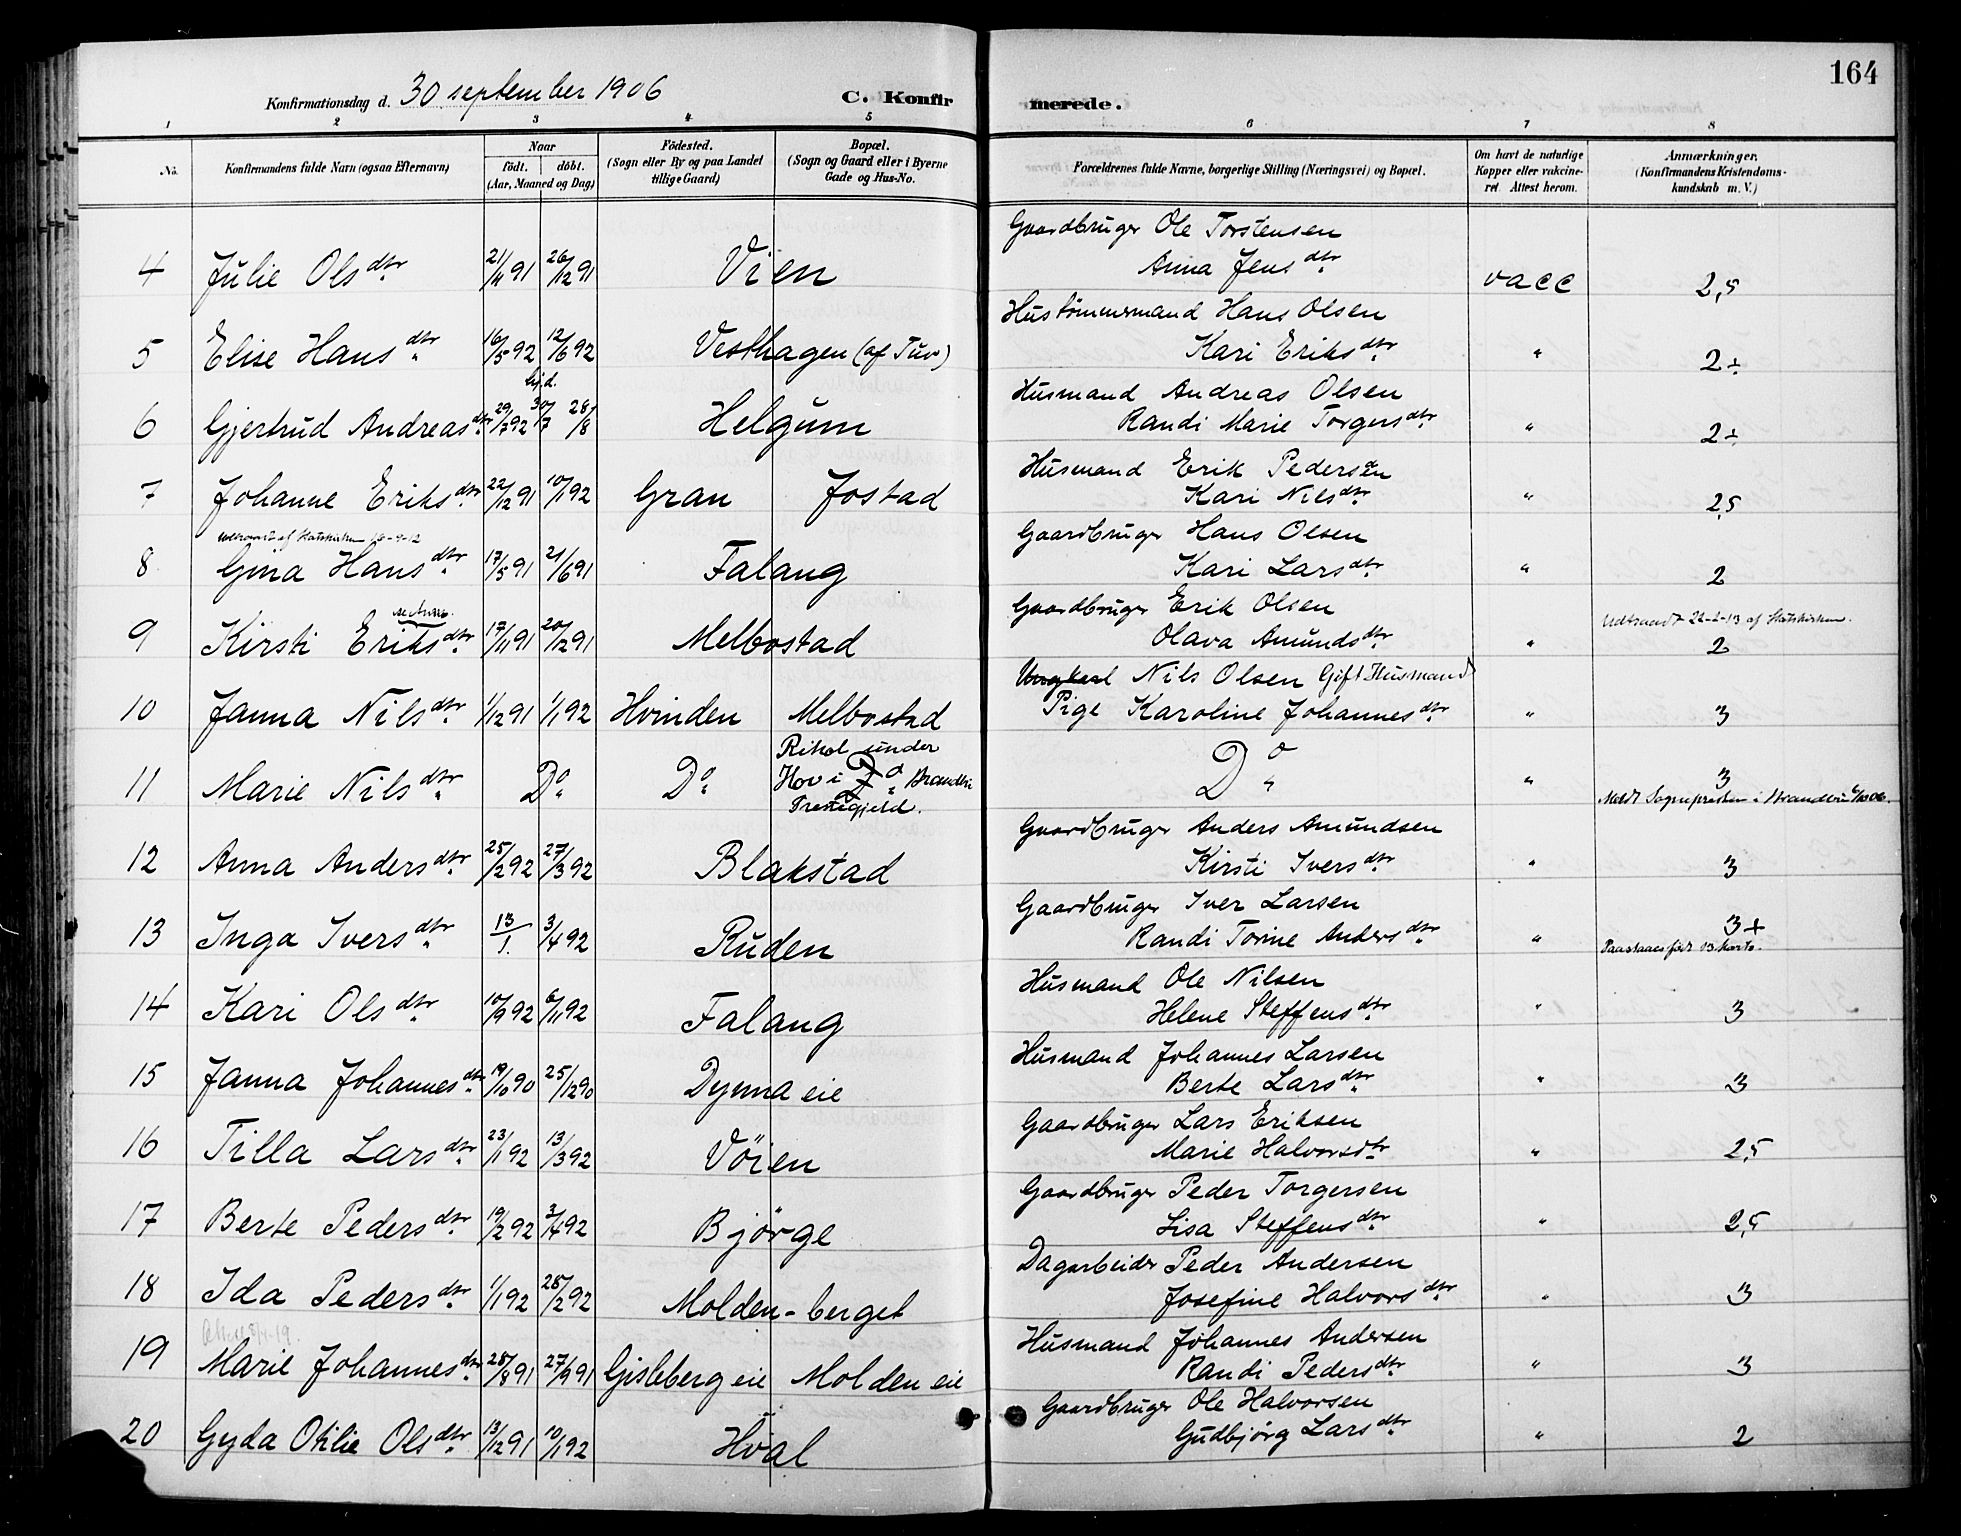 164
Konfirmationsdag d. 30 september 1906 C. Konfirmerede.
1 2 3 4 5 6 7 8
No. Konfirmandens fulde Navn (ogsaa Efternavn) Naar født. døbt. (Aar, Maaned og Dag) Födested. (Sogn eller By og paa Landet tillige Gaard) Bopæl. (Sogn og Gaard eller i Byerne Gade og Hus-No. Forældrenes fulde Navne, borgerlige Stilling (Næringsvei) og Bopæl. Om havt de naturlige Kopper eller vakcineret. Attest herom. Anmærkninger. (Konfirmandens Kristendomskundskab m. V.)
Gaardbruger Ole Torstensen
4 Julie Olsdtr 21/11 91 26/12 91 Vien Anna Jensdtr vacc 2,5
Hustømmermand Hans Olsen
5 Elise Hansdtr 16/5 92 12/6 92 Vesthagen (af Tuv) Kari Eriksdtr " 2÷
hjd.
Husmand Andreas Olsen
6 Gjertrud Andreasdtr 29/7 92 30/7 28/8 Helgum Randi Marie Torgersdtr " 2÷
Husmand Erik Pedersen
7 Johanne Eriksdtr 22/12 91 10/1 92 Gran Jostad Kari Nilsdtr " 2,5
af Statskirken
Gaardbruger Hans Olsen
8 Gina Hansdtr 17/5 91 21/6 91 Falang Kari Larsdtr " 2
Gaardbruger Erik Olsen
Udtraadt 22-2-13 af Statskirken.
9 Kirsti Eriksdtr 17/11 91 20/12 91 Melbostad Olava Amundsdtr " 2
Ungkarl Nils Olsen Gift Husmand
10 Janna Nilsdtr 1/12 91 1/1 92 Hvinden Melbostad Pige Karoline Johannesdtr " 3
Rikol under
11 Marie Nilsdtr Do Do Hov i Do Brandbu Do " 3
Præstegjeld.
Meldt Sognepresten i Brandbu 6/10 06.
Gaardbruger Anders Amundsen
12 Anna Andersdtr 25/2 92 27/3 92 Blakstad Kirsti Iversdtr " 3
Gaardbruger Iver Larsen
13 Inga Iversdtr 13/1. 3/4 92 Ruden Randi Torine Andersdtr " 3+
Paastaaes født 13 Marts.
Husmand Ole Nilsen
14 Kari Olsdtr 10/9 92 6/11 92 Falang Helene Steffensdtr " 3
Husmand Johannes Larsen
15 Janna Johannesdtr 19/10 90 25/12 90 Dynna eie Berte Larsdtr " 3
Gaardbruger Lars Eriksen
16 Tilla Larsdtr 23/1 92 13/3 92 Vöien Marie Halvorsdtr " 2,5
Gaardbruger Peder Torgersen
17 Berte Pedersdtr 19/2 92 3/4 92 Bjørge Lisa Steffensdtr " 2,5
Dagarbeider Peder Andersen
18 Ida Pedersdtr 1/1 92 28/2 92 Molden-berget Josefine Halvorsdtr " 3
Husmand Johannes Andersen
19 Marie Johannesdtr 28/8 91 27/9 91 Gisleberg eie Molden eie Randi Pedersdtr " 3
Gaardbruger Ole Halvorsen
20 Gyda Otilie Olsdtr 13/12 91 10/1 92 Hval Gudbjørg Larsdtr " 2